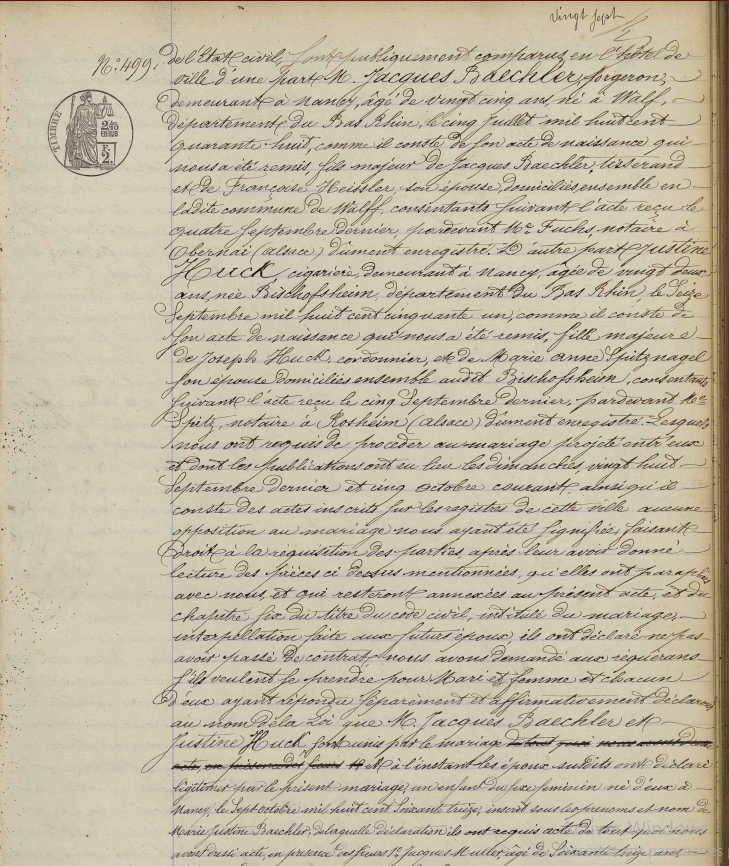 vingt sept
N°. 499.
TIMBRE
2/10
EN SUS
F.
2.
de l'Etat civil, sont publiquement comparus, en l'hôtel de
ville d'une part M. Jacques Baechler, forgeron,
demeurant à Nancy, âgé de vingt cinq ans, né à Walf,
département du Bas Rhin, le cinq Juillet mil huit cent
quarante huit, comme il conste de son acte de naissance qui
nous a été remis, fils majeur de Jacques Baechler, tisserand
et de Françoise Heissler, son épouse, domiciliés ensemble en
ladite commune de Walff, consentants suivant l'acte reçu le
quatre Septembre dernier, pardevant Me. Fuchs, notaire à
Obernai (alsace) dûment enregistré. D'autre part Justine
Huck, cigarière, demeurant à Nancy, âgée de vingt deux
ans, née Bischofsheim, département du Bas Rhin, le Seize
Septembre mil huit cent cinquante un, comme il conste de
son acte de naissance qui nous a été remis, fille majeure
de Joseph Huck, cordonnier, et de Marie Anne Spitznagel
son épouse domiciliés ensemble audit Bischofsheim, consentants
suivant l'acte reçu le cinq Septembre dernier, pardevant Me.
Spitz, notaire à Rosheim (alsace) dûment enregistré. Lesquels
nous ont requis de procéder au mariage projeté entr'eux
et dont les publications ont eu lieu les dimanches, vingt huit
Septembre dernier et cinq octobre courant, ainsi qu'il
conste des actes inscrits sur les registres de cette ville aucune
opposition au mariage nous ayant été signifiée, faisant
Droit à la réquisition des parties, après leur avoir donné
lecture des pièces ci dessus mentionnées, qu'elles ont paraphées
avec nous, et qui resteront annexées au présent acte, et du
chapitre six du titre du code civil, intitulé du mariage,
interpellation faite aux futurs époux, ils ont déclaré ne pas
avoir passé de contrat, nous avons demandé aux requérans
s'ils veulent se prendre pour Mari et femme et chacun
d'eux ayant répondu séparément et affirmativement déclarons
au nom de la Loi que M. Jacques Baechler et
Justine Huck sont unis par le mariage de tout quoi nous avons dressé
acte, en présence des sieurs 1° Et à l'instant les époux susdits ont déclaré
légitimer par le présent mariage, un enfant du sexe féminin né d'eux à
Nancy, le Sept octobre mil huit cent soixante treize, inscrit sous les prenoms et nom de
Marie Justine Baechler, de laquelle déclaration ils ont requis acte de tout quoi nous
avons dressé acte, en présence des sieurs 1° Jacques Muller, âgé de Soixante treize ans